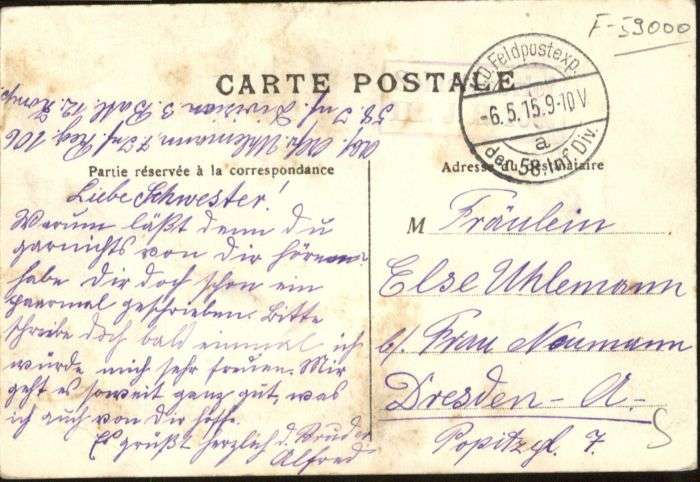 F-59000
CARTE POSTALE
K.D. Feldpostexp.
-6.5.15.9-10V
a
der 58. Inf. Div.
Abs. Uhlemann 7. Inf. Reg. 106
58. Inf. Division 3. Batl. 12. Komp.
Partie réservée à la correspondance
Adresse du destinataire
Liebe Schwester!
Warum läßt denn du
garnichts von dir hören
habe Dir doch schon ein
paarmal geschrieben. Bitte
schreibe doch bald einmal ich
würde mich sehr freuen. Mir
geht es soweit ganz gut, was
ich auch von Dir hoffe.
Es grüßt herzlich d. Bruder
Alfred
M Fräulein
Else Uhlemann
b/. Frau Naumann
Dresden-A-
Popitzgl. 7.
S